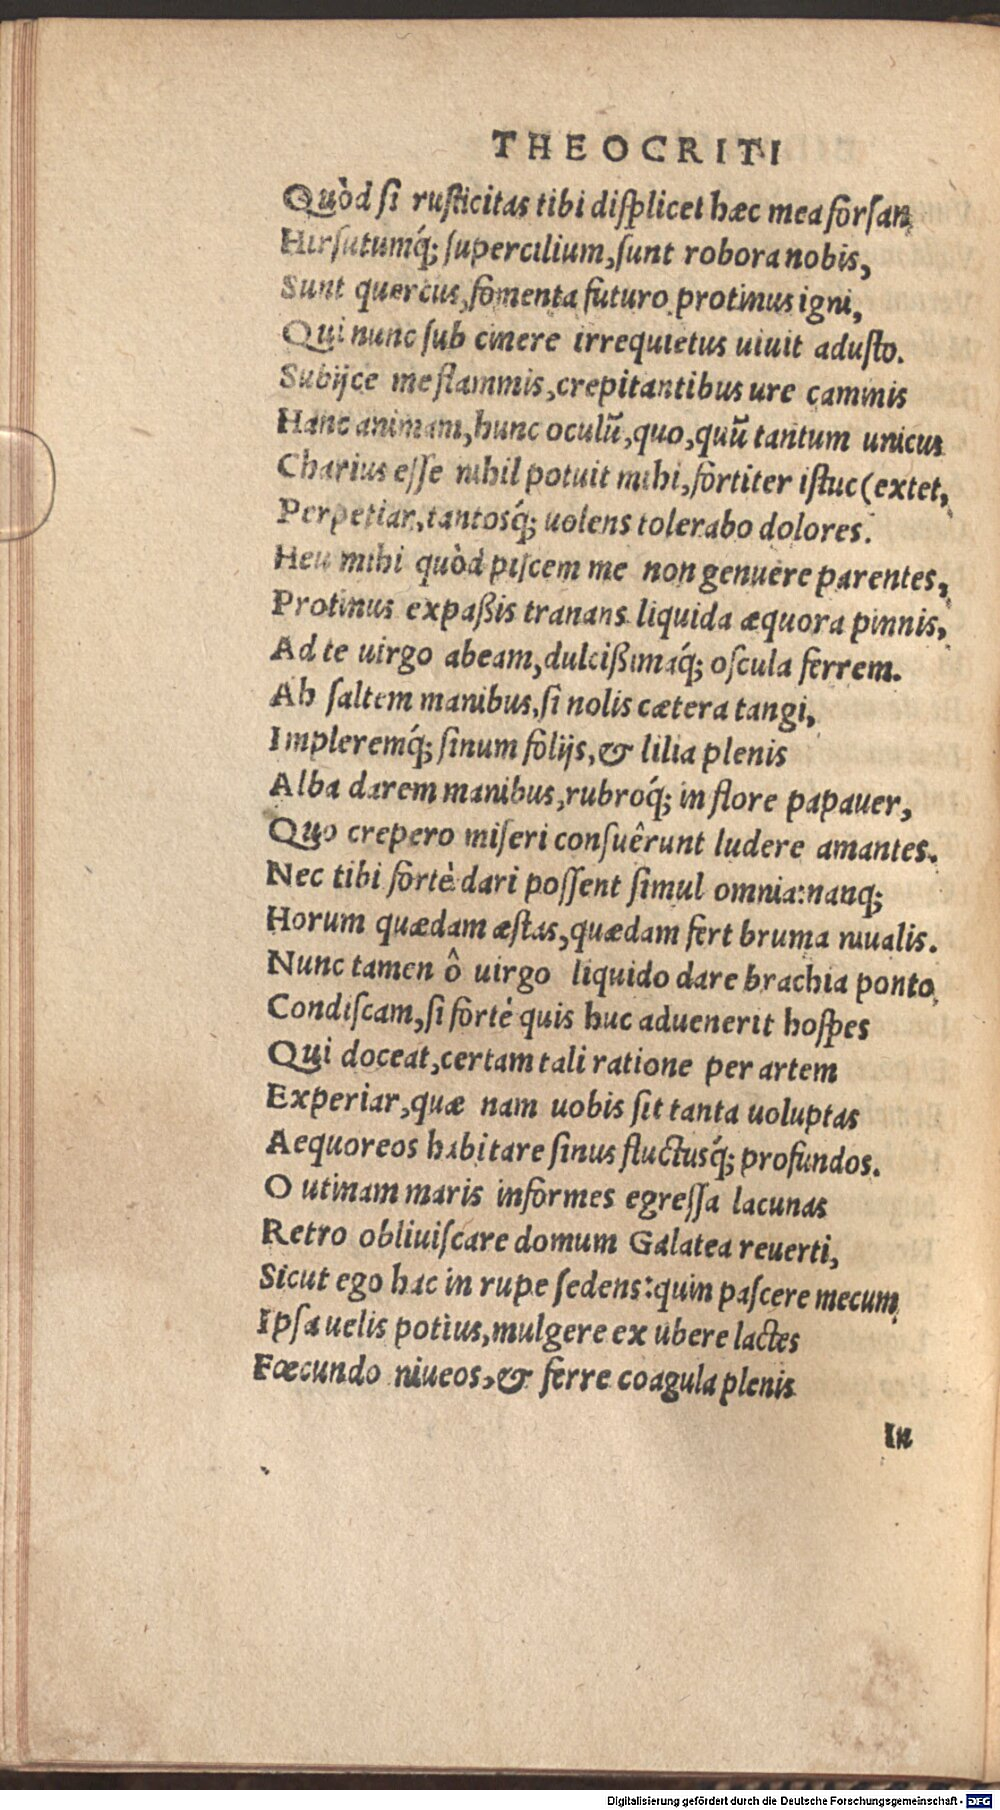 THEOCRITI
Quòd ſi ruſticitas tibi diſplicet hæc mea forſan,
Hirſutumq́; ſupercilium, ſunt robora nobis,
Sunt quercus, fomenta futuro protinus igni,
Qui nunc ſub cinere irrequietus uiuit aduſto.
Subijce me flammis, crepitantibus ure caminis
Hanc animam, hunc oculũ, quo, quũ tantum unicus
Charius eſſe nihil potuit mihi, fortiter iſtuc (extet,
Perpetiar, tantosq́; uolens tolerabo dolores.
Heu mihi quòd piſcem me non genuere parentes,
Protinus expaßis tranans liquida æquora pinnis,
Ad te uirgo abeam, dulcißimaq́; oſcula ferrem.
Ah ſaltem manibus, ſi nolis cætera tangi,
Impleremq́; ſinum folijs, & lilia plenis
Alba darem manibus, rubroq́; in flore papauer,
Quo crepero miſeri conſuêrunt ludere amantes.
Nec tibi fortè dari poſſent ſimul omnia: nanq;
Horum quædam æſtas, quædam fert bruma niualis.
Nunc tamen ô uirgo liquido dare brachia ponto,
Condiſcam, ſi fortè quis huc aduenerit hoſpes
Qui doceat, certam tali ratione per artem
Experiar, quæ nam uobis ſit tanta uoluptas
Aequoreos habitare ſinus fluctusq́; profundos.
O utinam maris informes egreſſa lacunas
Retro obliuiſcare domum Galatea reuerti,
Sicut ego hac in rupe ſedens: quin paſcere mecum,
Ipſa uelis potius, mulgere ex ubere lactes
Fœcundo niueos, & ferre coagula plenis
In
Digitalisierung gefördert durch die Deutsche Forschungsgemeinschaft - DFG